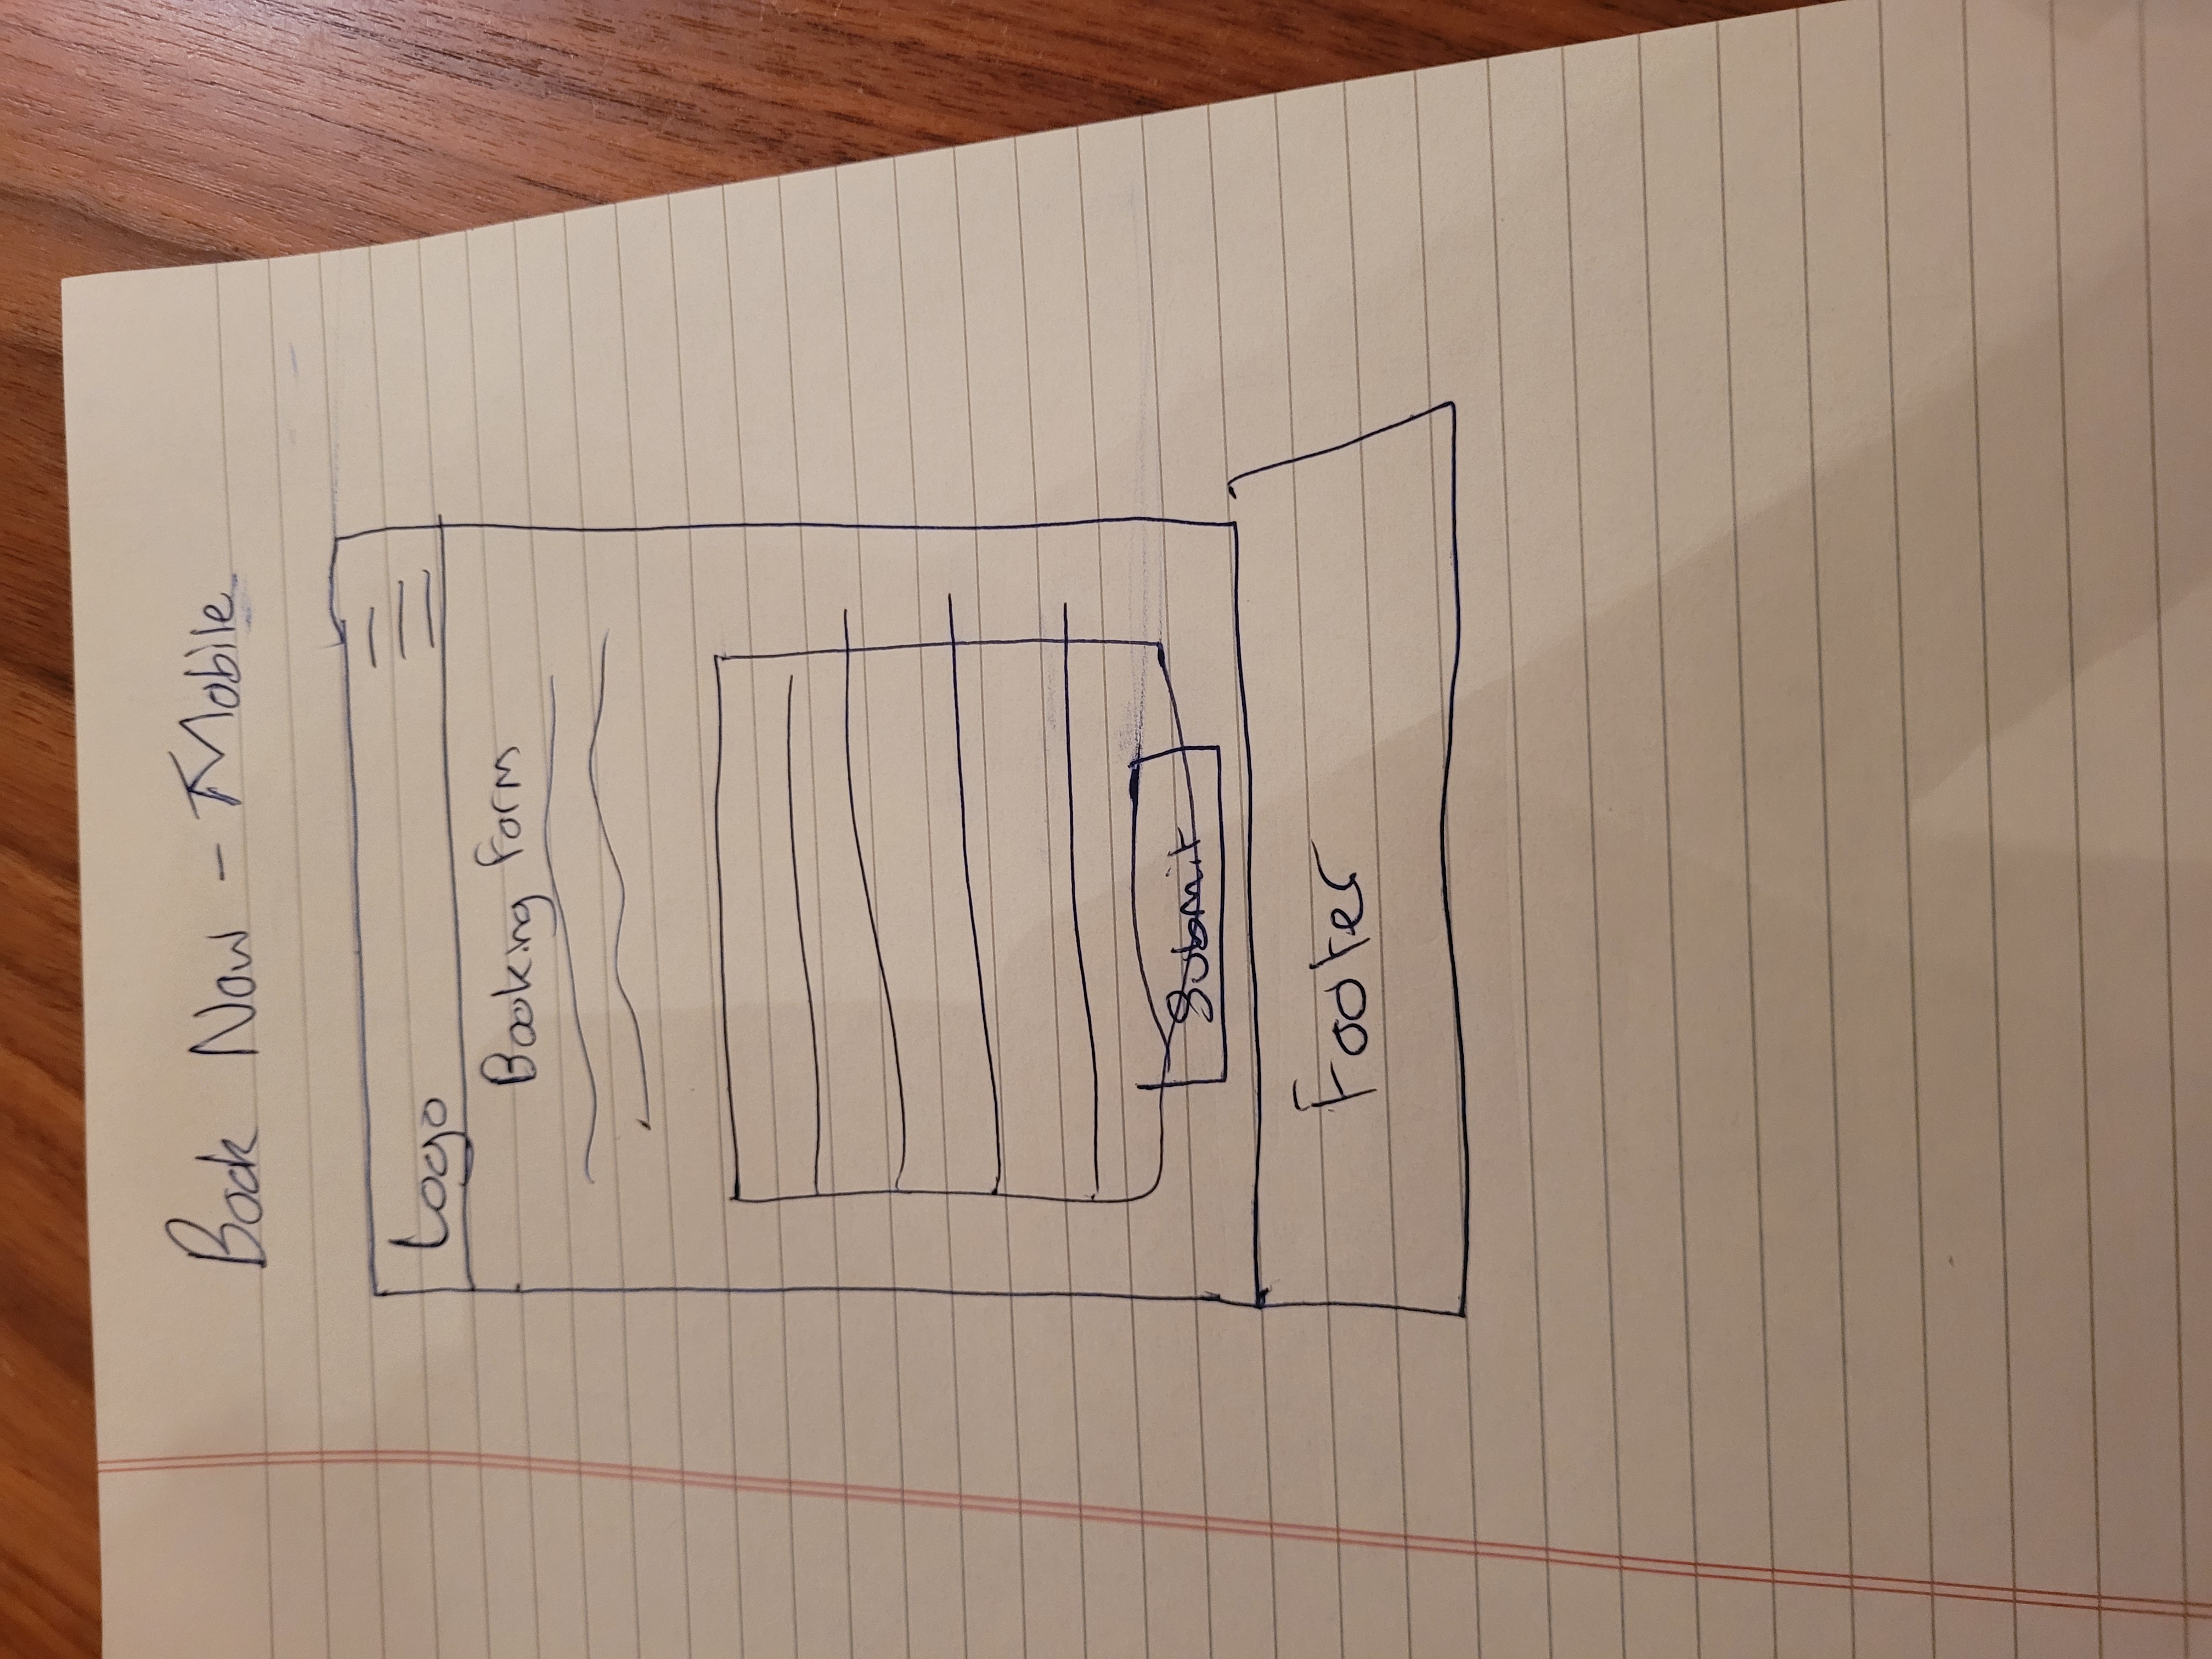 Book Now - Mobile
Logo
Booking Form
Submit
Footer